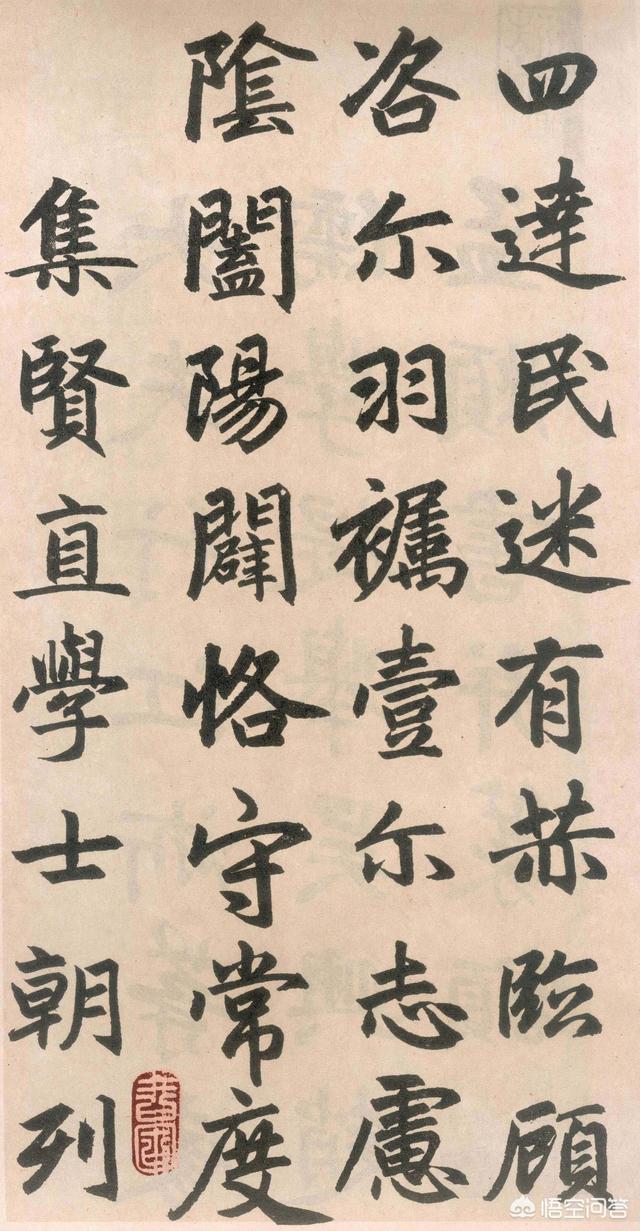 四達民迷有赫臨顧
咨尔羽壹尔志慮
陰闔陽闢恪守常度
集賢直學士朝列
悟空问答